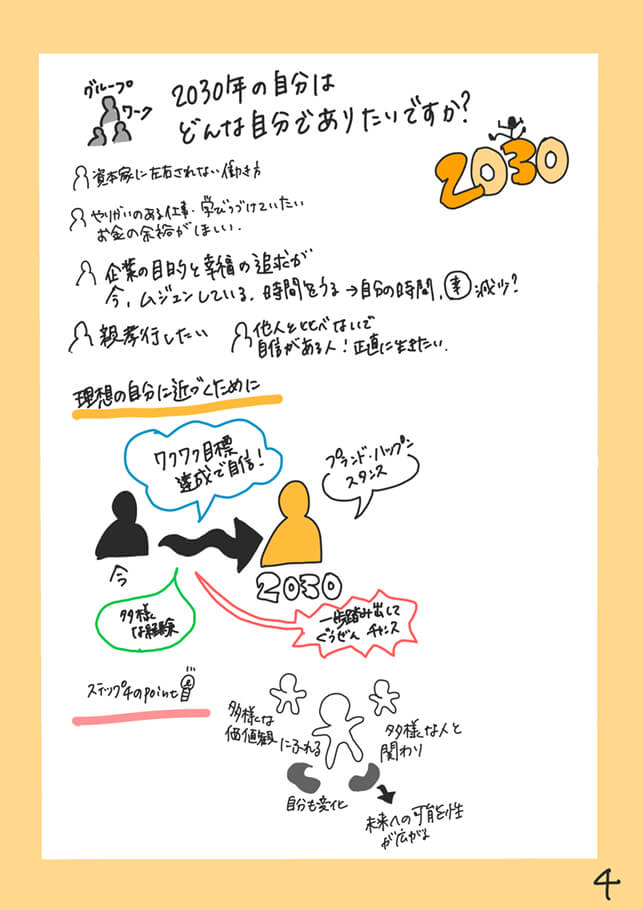 グループ
ワーク
2030年の自分は
どんな自分でありたいですか?
2030
資本家に左右されない働き方
やりがいのある仕事・学びつづけていたい
お金の余裕がほしい.
企業の目的と幸福の追求が
今,ムジュンしている。時間をうる→自分の時間,幸減ツ?
親孝行したい
他人と比べないで
自信がある人!正直に生きたい.
理想の自分に近づくために
ワクワク目標
達成で自信!
プランド・ハップン
スタンス
今
2030
多様
な経験
一歩踏み出して
ぐうぜん チャンス
ステップ4のpoint
多様な
価値観にふれる
多様な人と
関わり
自分も変化
未来への可能性
が広がる
4